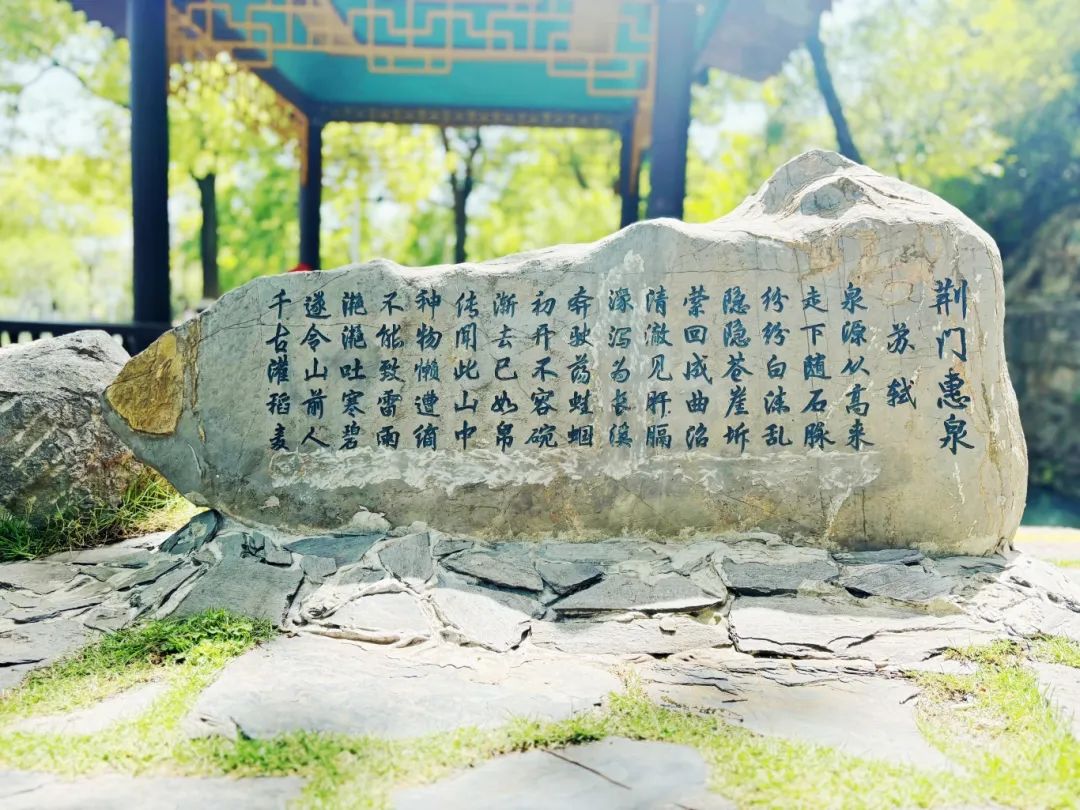 荆门惠泉
苏轼
泉源从高来
走下随石脉
纷纷白沫乱
隐隐苍崖坼
萦回成曲沼
清澈见肝膈
潨泻为长溪
奔驶荡蛙蝈
初开不容碗
渐去已如帛
传闻此山中
神物懒遭谪
不能致雷雨
滟滟吐寒碧
遂令山前人
千古灌稻麦